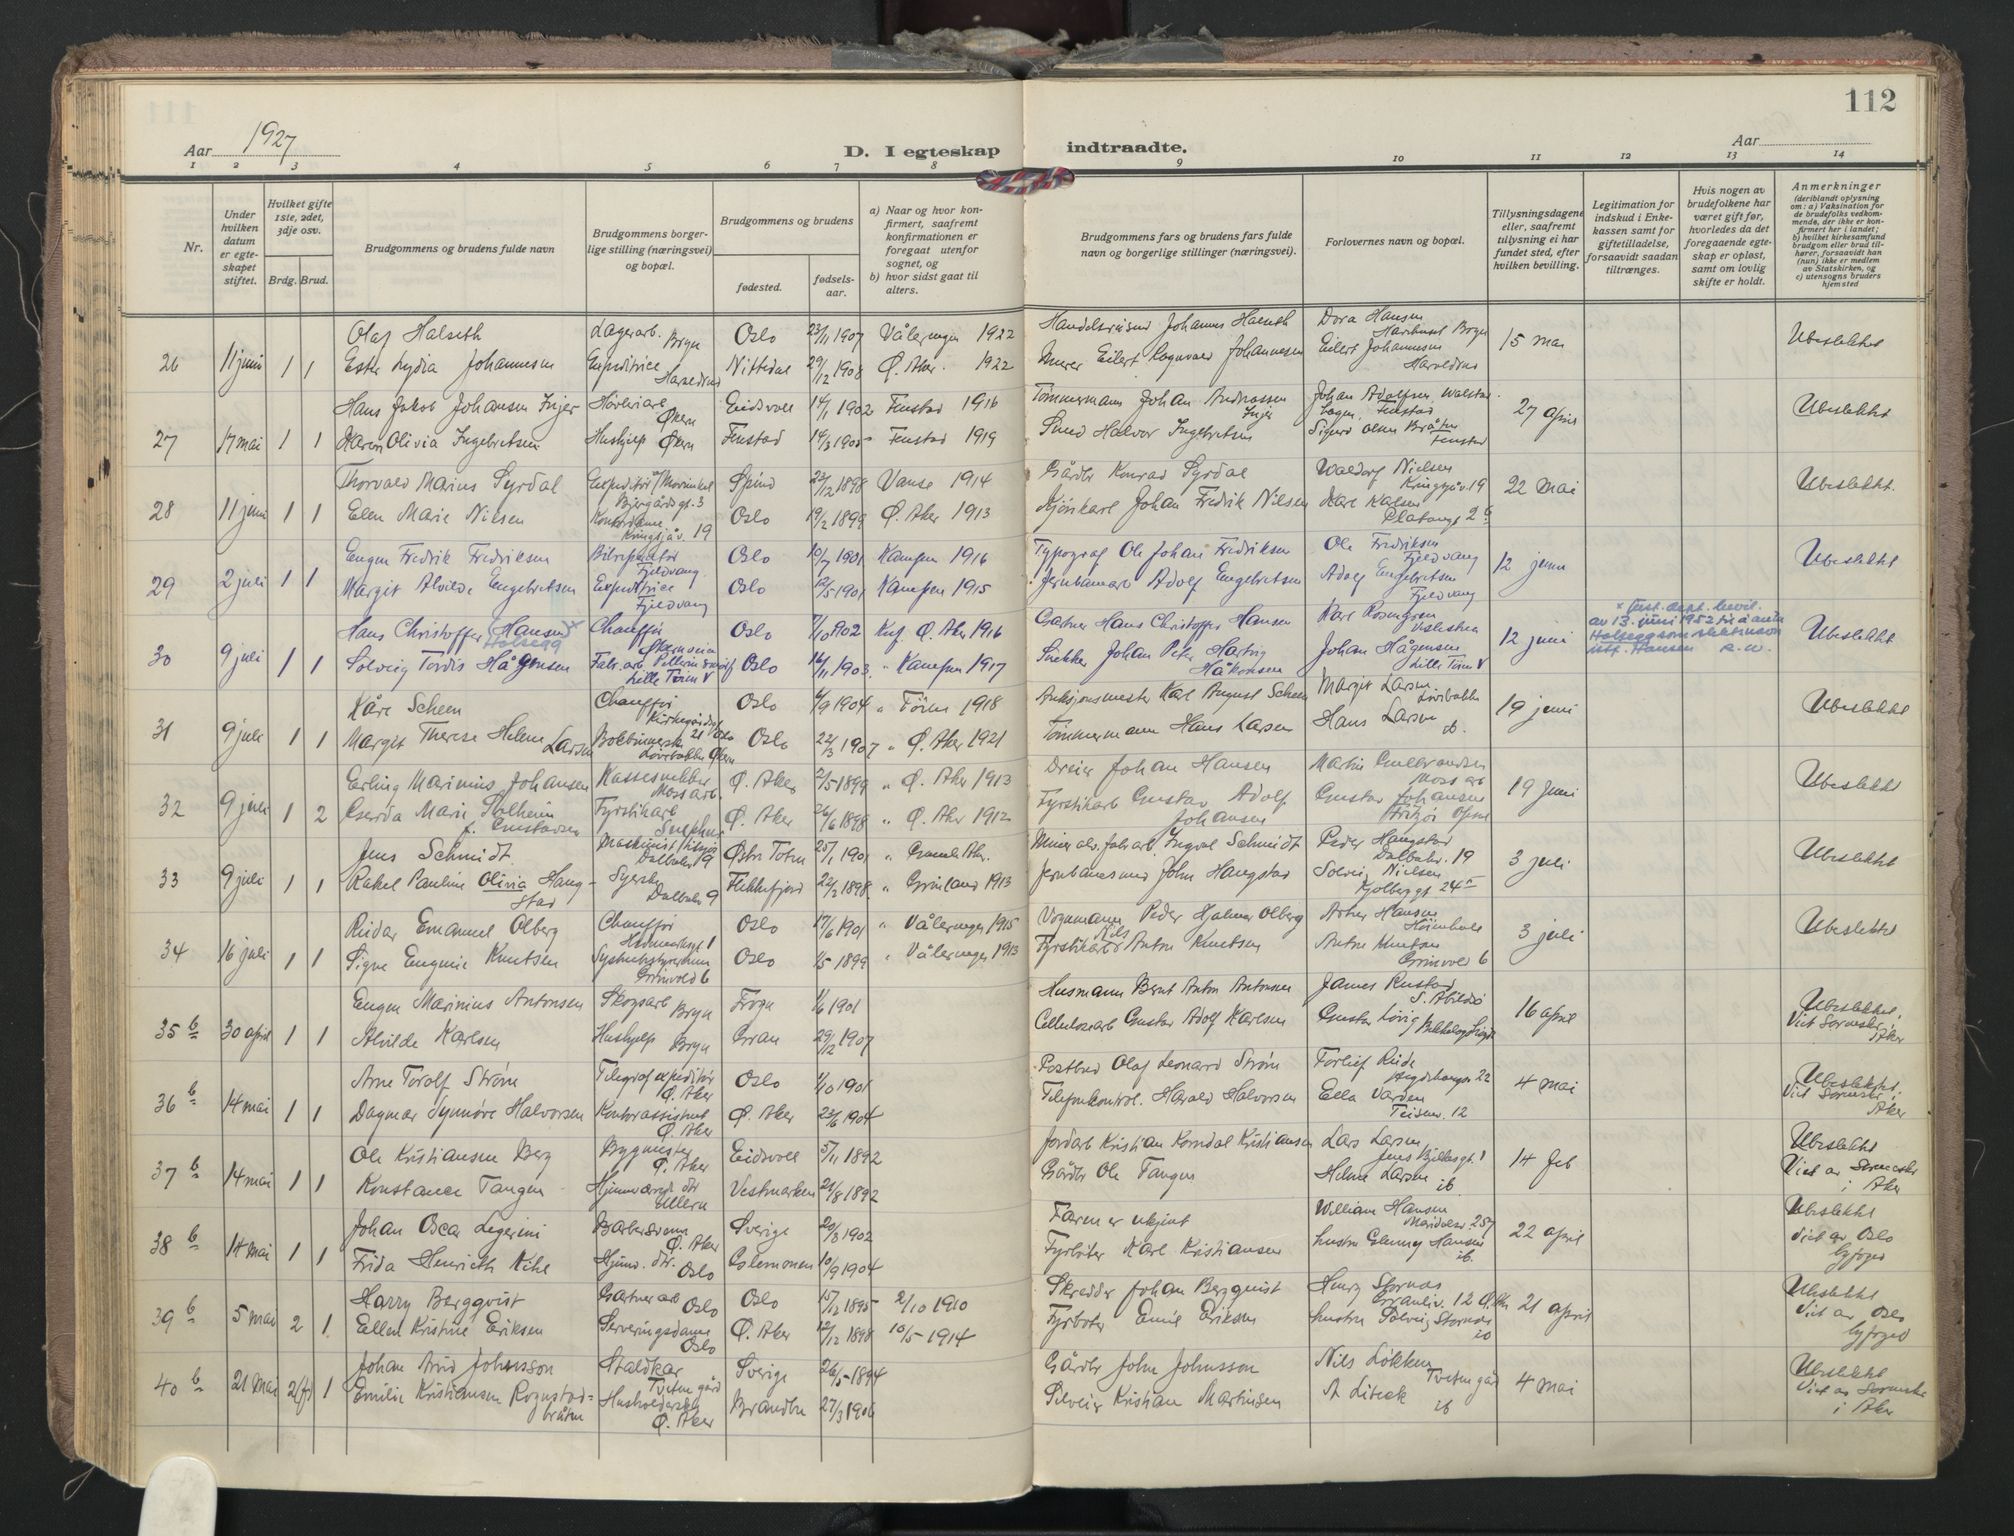 112
Aar 1927
D. I egteskap indtraadte.
Aar
1 2 3 4 5 6 7 8 9 10 11 12 13 14
Nr.
Under hvilken datum er egteskapet stiftet.
Hvilket gifte 1ste, 2det, 3dje osv.
Brdg. Brud.
Brudgommens og brudens fulde navn
Brudgommens borgerlige stilling (næringsvei) og bopæl.
Brudgommens og brudens
fødested.
fødselsaar.
a) Naar og hvor konfirmert, saafremt konfirmationen er foregaat utenfor sognet, og
b) hvor sidst gaat til alters.
Brudgommens fars og brudens fars fulde navn og borgerlige stillinger (næringsvei).
Forlovernes navn og bopæl.
Tillysningsdagene eller, saafremt tillysning ei har fundet sted, efter hvilken bevilling.
Legitimation for indskud i Enkekassen samt for giftetilladelse, forsaavidt saadan tiltrænges.
Hvis nogen av brudefolkene har været gift før, hvorledes da det foregaaende egteskap er opløst, samt om lovlig skifte er holdt.
Anmerkninger (deriblandt oplysning om: a) Vaksination for de brudefolks vedkommende, der ikke er konfirmert her i landet; b) hvilket kirkesamfund brudgom eller brud tilhører, forsaavidt han (hun) ikke er medlem av Statskirken, og c) utensogns bruders hjemsted
26 11 juni 1 1
Olaf Halseth Lagerarb. Bryn Oslo 23/11 1907 Vålerengen 1922 Johannes Halseth Dora Hansen Bryn 15 mai Ubeslektet
Ester Lydia Johannesen Expeditrice Nittedal 29/12 1908 Ø. Aker. 1922 Murer Eilert Ragnvald Johannesen Eilert Johannesen
27 17 mai 1 1
Hans Jakob Johansen Økern Eidsvoll 14/1 1902 Fenstad 1916 Tømmermann Johan Andreassen Johan Adolfsen Fenstad 27 april Ubeslektet
Karen Olivia Ingebretsen Hushjelp Økern Fenstad 1905 Fenstad 1919 Smed Halvor Ingebretsen Sigurd Olsen Bråten Fenstad
28 11 juni 1 1
Thorvald Marius Syrdal Bjergårdsgt. 3 Spind 22/12 1898 Vanse 1914 Gårdbr Konrad Syrdal Waldorf Nielsen Kringsjåv. 19 22 mai Ubeslektet.
Ellen Marie Nilsen Kontordame Kringsjåv. 19 Oslo 19/2 1899 Ø. Aker 1913 Kjørekarl Johan Fredrik Nilsen Kåre Karlsen
29 2 juli 1 1
Eugen Fredrik Fredriksen Bilreparatør Fjeldvang Oslo 10/7 1901 Kampen 1916 Typograf Ole Johan Fredriksen Ole Fredriksen Fjeldvang 12 juni Ubeslektet
Margit Alvilde Engebretsen Expeditrice Fjeldvang Oslo 12/5 1901 Kampen 1915 Jernbanearb Adolf Engebretsen Adolf Engebretsen Fjeldvang
30 9 juli 1 1
Hans Christoffer (Hansen) x Holsegg Chauffør Oslo 7/10 1902 Ø. Aker 1916 Gartner Hans Christoffer Hansen Kåre Rosengren 12 juni Ubeslektet
x Just. dept. bevil. av 13. juni 1952 til å anta Holsegg som slektsnavn istf. Hansen
Solveig Tordis Hågensen Fabr. arb. Lille Tøien V Oslo 16/11 1903 Kampen 1917 Snekker Johan Peter Hartvig Håkonsen Johan Hågensen Lille Tøien V
31 9 juli 1 1
Kåre Scheen Chauffør Oslo 6/9 1904 " Tøien 1918 Auksjonsmester Karl August Scheen Margit Larsen 19 juni Ubeslektet
Margit Therese Helene Larsen Oslo 22/3 1907 " Ø. Aker 1921 Tømmermann Hans Larsen Hans Larsen ib.
32 9 juli 1 2
Erling Marinius Johansen Kassesnekker Ø. Aker 2/5 1899 " Ø. Aker 1913 Dreier Johan Hansen Martin Gulbrandsen 19 juni Ubeslektet
Gerda Marie Solheim f. Gustavsen Fyrstikarb Ø. Aker 26/6 1898 " Ø. Aker 1912 Fyrstikarb Gustav Adolf Johansen Gustav Johansen
33 9 juli 1 1
Jens Schmidt Maskinist Dalbakv 9 Østre Toten 25/1 1901 " Gamle Aker. Ingval Schmidt Peder Haugstad Dalbakv. 19 3 juli Ubeslektet
Rakel Pauline Olivia Haugstad Syerske Dalbakv 9 Flekkefjord 22/2 1898 " Grønland 1913 Jernbanemand John Haugstad Solveig Nielsen Kjølberggt 24
34 16 juli 1 1
Reidar Emanuel Olberg Chauffør Oslo 17/6 1901 " Vålerengen 1915 Vognmann Peder Hjalmar Olberg Hansen 3 juli Ubeslektet
Signe Eugenie Knutsen Grinvold 6 Oslo 1/5 1899 " Vålerengen 1913 Fyrstikarb Nils Anton Knutsen Anton Knutsen Grinvold 6
35 b 30 april 1 1
Eugen Marinius Antonsen Skogsarb Bryn Frogn 1/6 1901 Husmann Bernt Anton Antonsen James Rustad 16 april Ubeslektet. Viet Sorenskr. i Aker
Alvilde Karlsen Hushjelp Bryn Gran 29/12 1907 Cellulosearb Gustav Adolf Karlsen Gustav
36 b 14 mai 1 1
Arne Torolf Strøm Telegrafexpeditør Ø. Aker Oslo 1/10 1901 Postbud Olaf Leonard Strøm Torleif Riide 4 mai Ubeslektet. Viet Sorenskr. i Aker
Dagmar Synnøve Halvorsen Kontorassistent Ø. Aker Ø. Aker 23/6 1904 Telefonkontrol. Harald Halvorsen Ella Varden Teisenv. 12
37 b 14 mai 1 1
Ole Kristiansen Berg Bygmester Ø. Aker Eidsvoll 5/11 1892 Jordarb Kristian Korndal Kristiansen Lars Larsen Jens Bjelkesgt. 1 14 feb Ubeslektet Viet av Sorenskr i Aker
Konstance Tangen Ullern Vestmarken 21/8 1892 Gårdbr Ole Tangen Helene Larsen ib
38 b 14 mai 1 1
Johan Oscar Legerini Barbersvenn Ø. Aker Sverige 20/3 1902 Faren er ukjent William Hansen Maridalsv 257 22 april Ubeslektet Viet av Oslo byfoged
Frida Henriette Kihl Hjemv. dtr. Oslo 10/9 1904 Fyrbøter Karl Kristiansen Hansen ib.
39 b 5 mai 2 1
Harry Bergqvist Gartnerarb Oslo Oslo 15/12 1895 2/10 1910 Skredder Johan Bergqvist Henry Stornas 21 april Ubeslektet Viet av Oslo byfoged
Ellen Kristine Eriksen Serveringsdame Oslo Ø. Aker 12/12 1898 10/5 1914 Fyrbøter Emil Eriksen Solveig Stornas ib
40 b 21 mai 2(f) 1
Johan Arvid Johnsson Staldkar Tveten gård Sverige 26/5 1894 Gårdbr John Johnsson Nils Løkken Tveten gård 4 mai Ubeslektet Viet av Sorenskr i Aker
Emilie Kristiansen Rognstadbråten Husholderske Ø. Aker Brandbu 27/3 1906 Kristian Martinsen ib